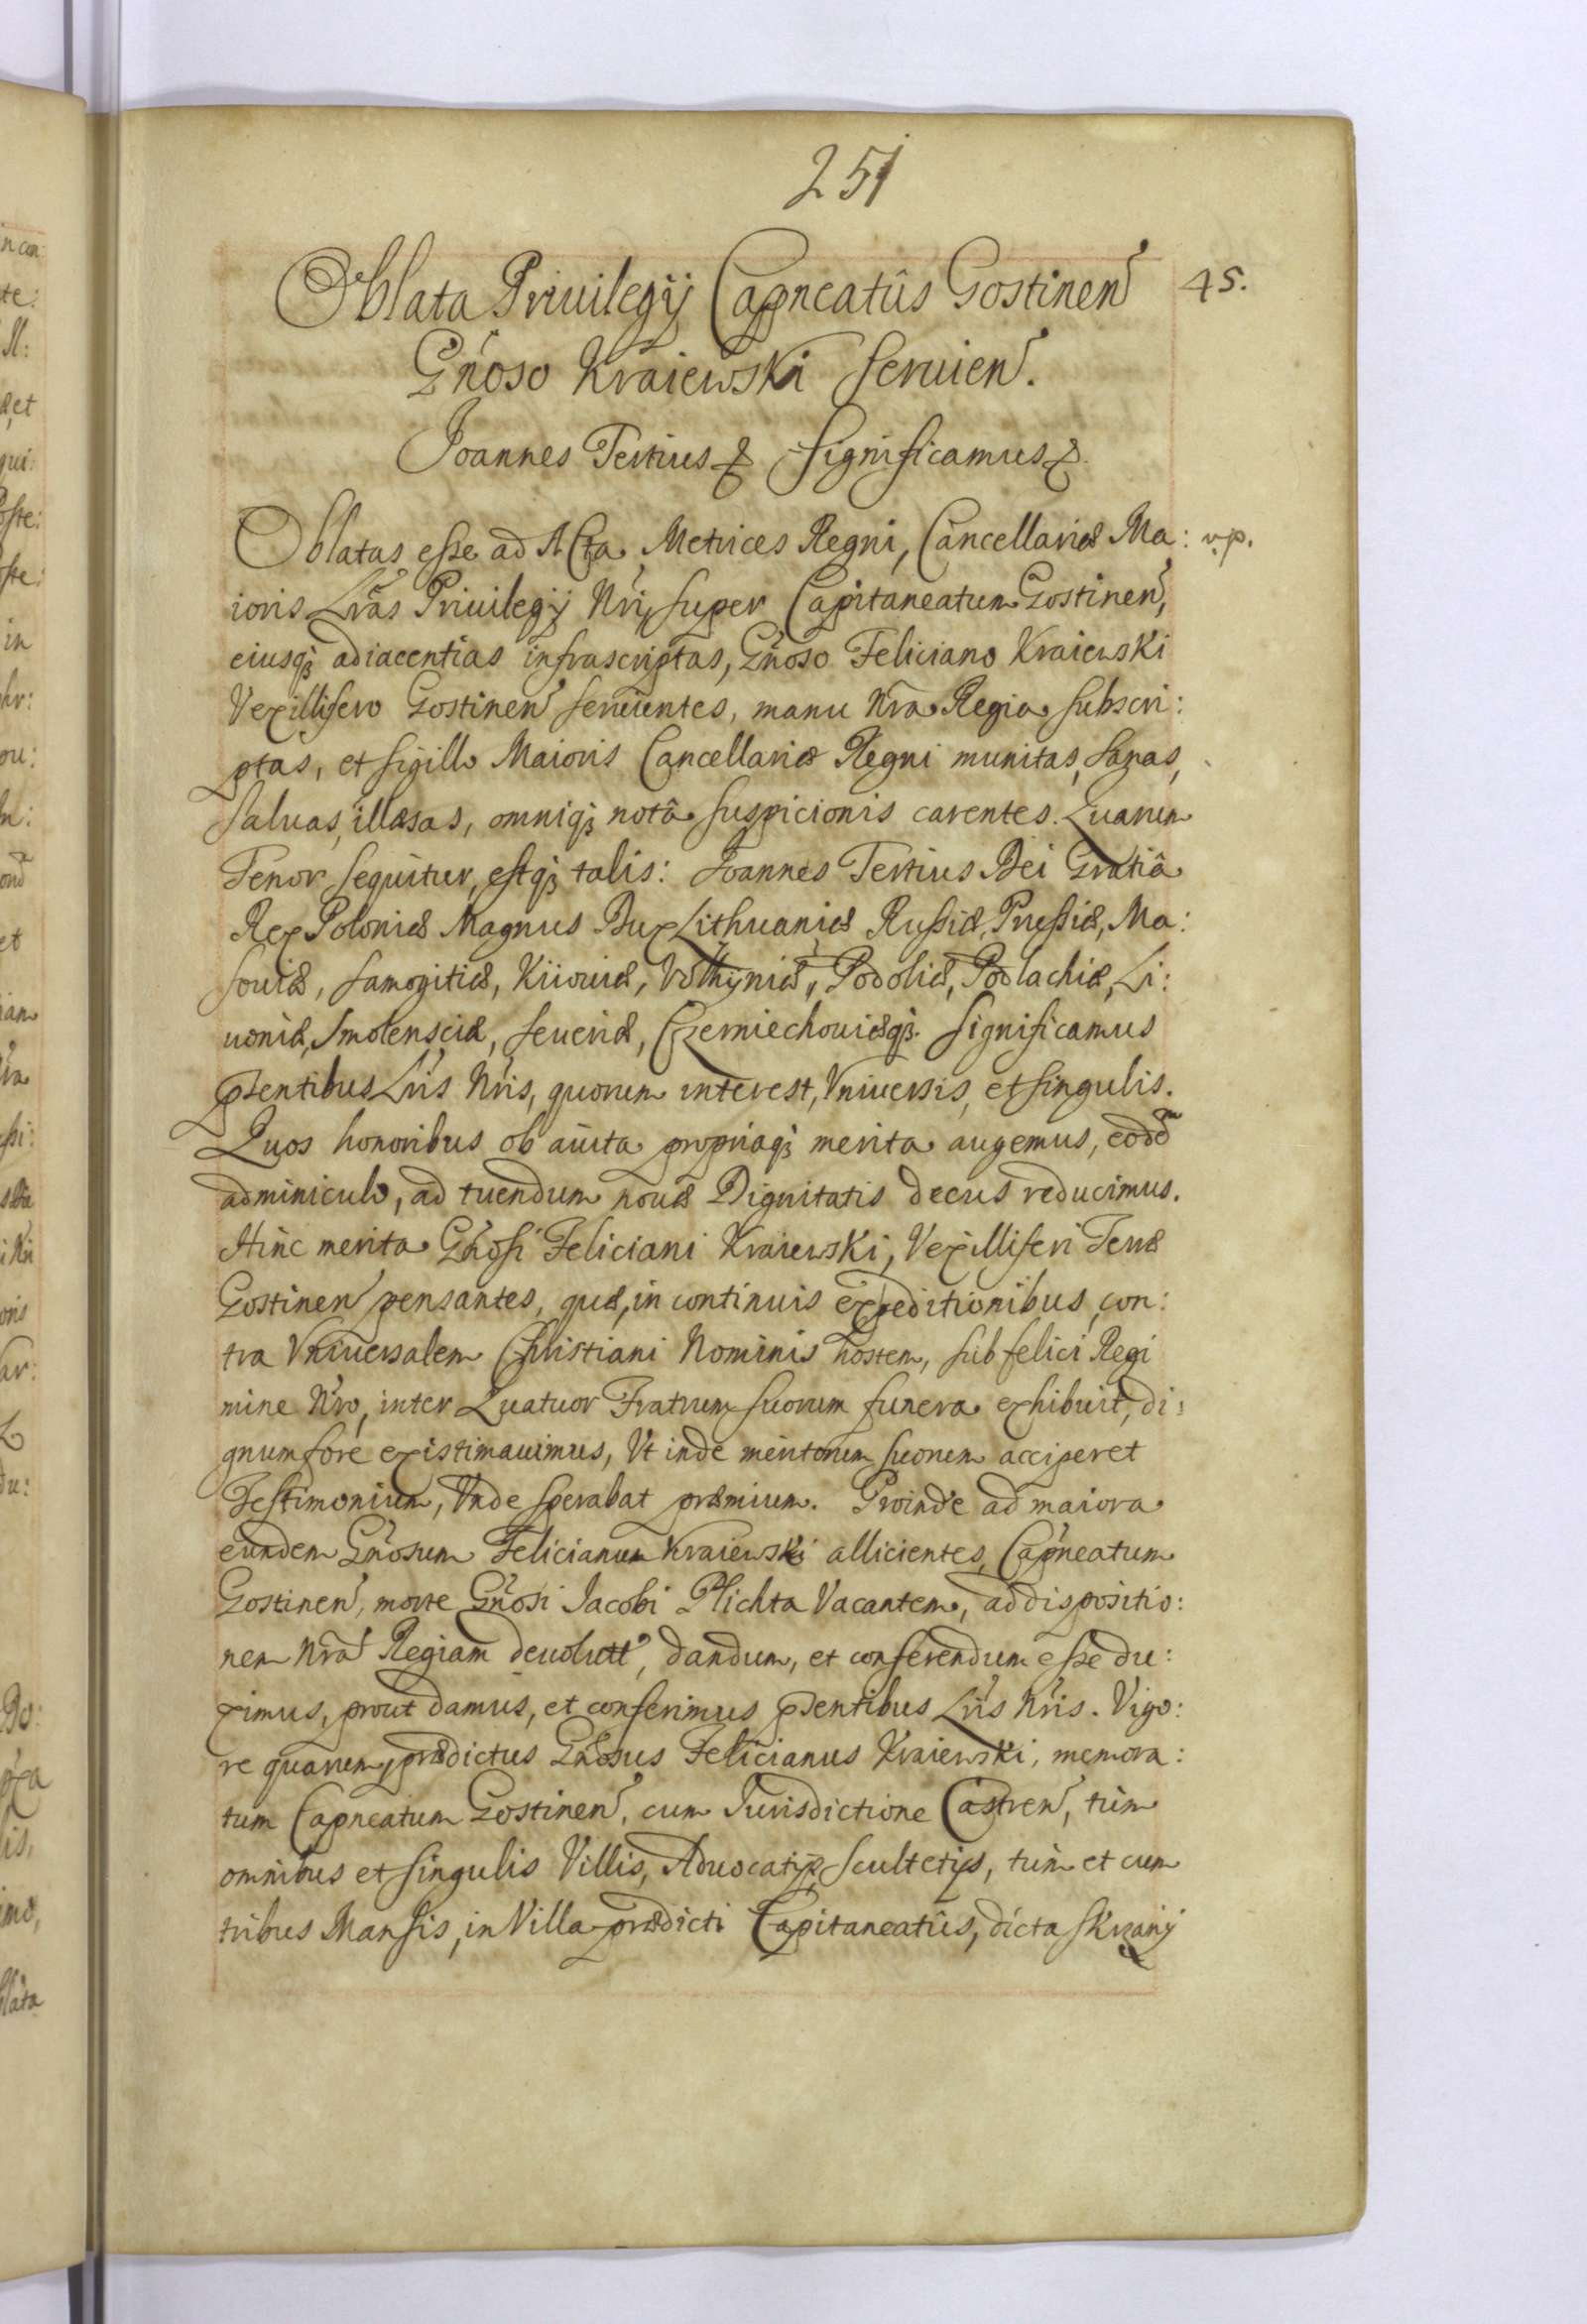 251
Oblata Priuilegij Capneatûs Gostinen
45.
Gnoso Kraiewski seruien.
Joannes Tertius &. Significamus &.
Oblatas esse ad Acta Metrices Regni, Cancellariæ Ma:
v.p.
ioris Lras Priuilegij Nri, super Capitaneatum Gostinen,
eiusq; adiacentias infrascriptas, Gnoso Feliciano Kraiewski
Vexillifero Gostinen seruientes, manu Nra Regia subscri:
ptas, et sigillo Maioris Cancellariæ Regni munitas, sanas,
saluas, illæsas, omniq; notâ suspicionis carentes. Quarum
Tenor sequitur, estq; talis: Joannes Tertius Dei Gratiâ
Rex Poloniæ Magnus Dux Lithuaniæ Russiæ, Prussiæ, Ma:
souiæ, Samogitiæ, Kiiouiæ, Volhyniæ, Podoliæ, Podlachiæ, Li:
uoniæ, Smolensciæ, Seueriæ, Czerniechouiæq;. Significamus
pñtibus Lris Nris, quorum interest, Vniuersis, et singulis.
Quos honoribus ob auita propriaq; merita augemus, eodē
adminiculo, ad tuendum nouæ Dignitatis decus reducimus.
Hinc merita Gnosi Feliciani Kraiewski, Vexilliferi Terræ
Gostinen pensantes, quæ, in continuis expeditionibus, con:
tra Vniuersalem Christiani Nominis hostem, sub felici Regi
mine Nro, inter Quatuor Fratrum suorum funera exhibuit, di:
gnum fore existimauimus, Vt inde meritorum suorum acciperet
Testimonium, Vnde sperabat præmium. Proinde ad maiora
eundem Gnosum Felicianum Kraiewski allicientes, Capneatum
Gostinen, morte Gnosi Jacobi Plichta Vacantem, ad dispositio:
nem Nra Regiam deuolutt, dandum, et conferendum esse du:
ximus, prout damus, et conferimus pñtibus Lris Nris. Vigo:
re quarum, prædictus Gnosus Felicianus Kraiewski, memora:
tum Capneatum Gostinen, cum Jurisdictione Castren, tum
omnibus et singulis Villis, Aduocatijs, Scultetijs, tum et cum
tribus Mansis, in Villa prædicti Capitaneatûs, dicta Skrzany